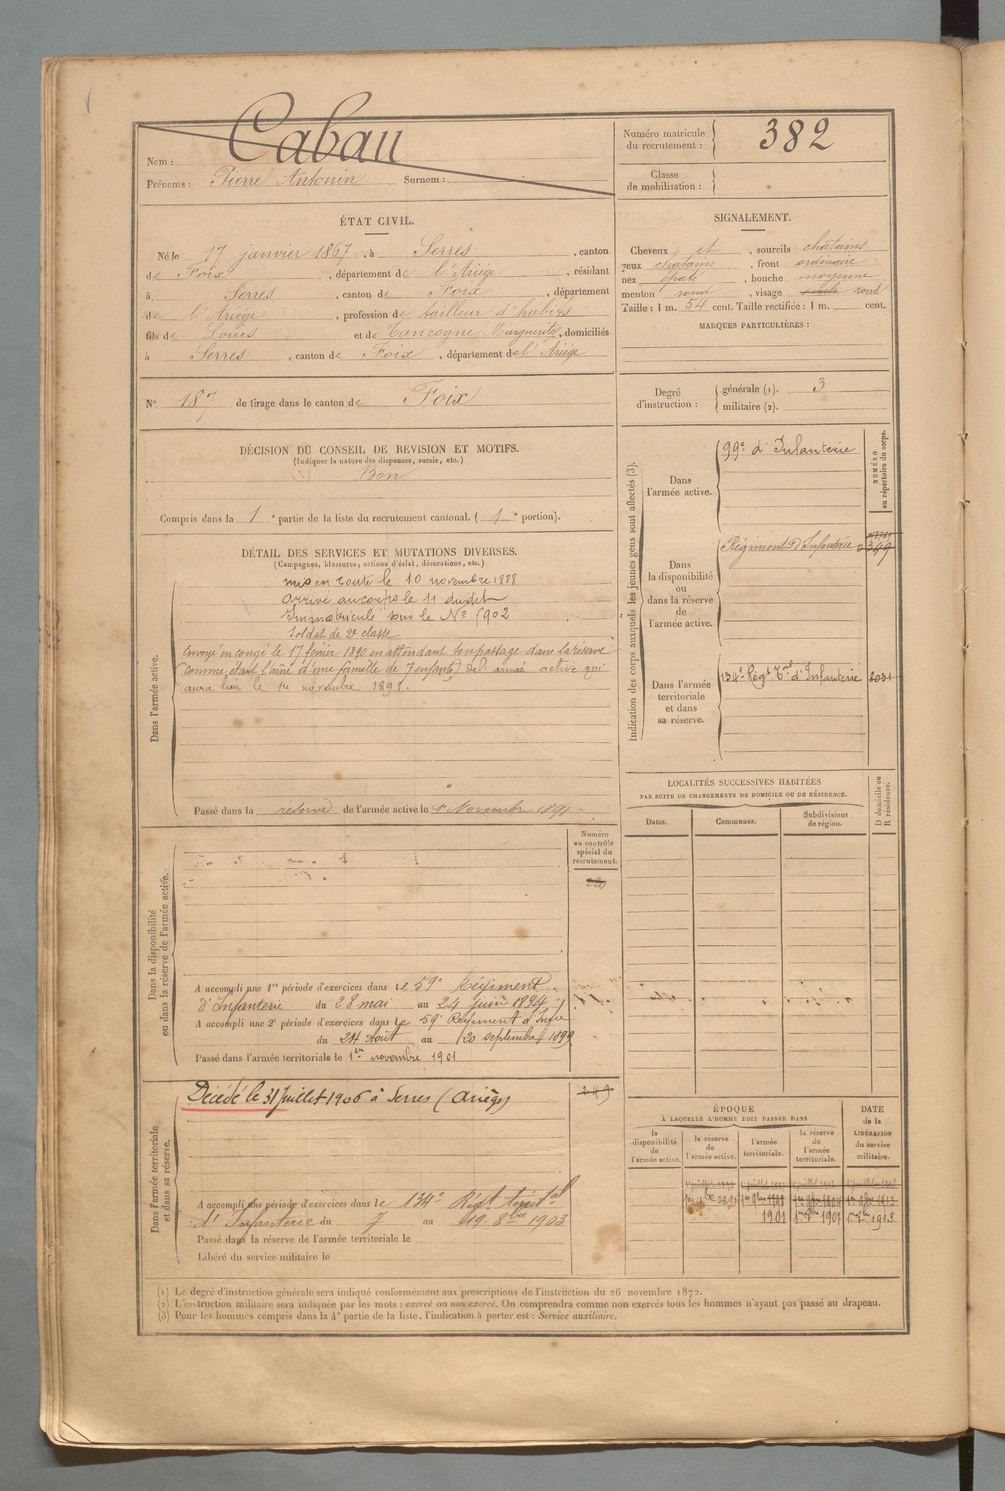 Nom : Cabau
Prénoms : Pierre Antonin Surnom :
Numéro matricule du recrutement : 382
Classe de mobilisation :
ÉTAT CIVIL.
Né le 17 janvier 1867, à Serres, canton
de Foix, département de l'Ariège, résidant
à Serres, canton de Foix, département
de l'Ariège, profession de tailleur d'habits
fils de Louis et de Tancogne Marguerite, domiciliés
à Serres, canton de Foix, département de l'Ariège
N° 187 de tirage dans le canton de Foix
SIGNALEMENT.
Cheveux et, sourcils chatains
yeux chatains, front ordinaire
nez épaté, bouche moyenne
menton rond, visage rond
Taille : 1 m. 54 cent. Taille rectifiée : 1 m. cent.
MARQUES PARTICULIÈRES :
Degré d'instruction : générale (1). 3
militaire (2).
DÉCISION DU CONSEIL DE REVISION ET MOTIFS.
(Indiquer la nature des dispenses, sursis, etc.)
Bon
Compris dans la 1e partie de la liste du recrutement cantonal. (1e portion).
DÉTAIL DES SERVICES ET MUTATIONS DIVERSES.
(Campagnes, blessures, actions d'éclat, décorations, etc.)
Dans l'armée active.
mis en route le 10 novembre 1888
Arrivé au corps le 11 dudit
Immatriculé sous le N°
Soldat de 2e classe
Envoyé en congé le 17 février 1890 en attendant son passage dans la réserve
(comme étant l'aîné d'une famille de 7 enfants) de l'armée active qui
aura lieu le 1er novembre 1891.
Passé dans la réserve de l'armée active le 1er Novembre 1891
Indication des corps auxquels les jeunes gens sont affectés (3).
NUMÉRO au répertoire du corps.
Dans l'armée active.
99e d'Infanterie
Dans la disponibilité ou dans la réserve de l'armée active.
Régiment d'Infanterie
Dans l'armée territoriale et dans sa réserve.
134e Régt Tal d'Infanterie
LOCALITÉS SUCCESSIVES HABITÉES
PAR SUITE DE CHANGEMENTS DE DOMICILE OU DE RÉSIDENCE.
Dates. Communes. Subdivisions de région. D domicile ou R résidence.
Numéro au contrôle spécial du recrutement.
220
Dans la disponibilité ou dans la réserve de l'armée active.
A accompli une 1re période d'exercices dans le 59e Régiment
d'Infanterie du 28 mai au 24 juin 1894
A accompli une 2e période d'exercices dans le 59e Régiment d'Infie
du 24 Août au 20 septembre 1899
Passé dans l'armée territoriale le 1er novembre 1901
Dans l'armée territoriale et dans sa réserve.
Décédé le 31 juillet 1906 à Serres (Ariège)
A accompli une période d'exercices dans le 134e Régt territal
d'Infanterie du 7 au 19 8bre 1903
Passé dans la réserve de l'armée territoriale le
Libéré du service militaire le
ÉPOQUE
À LAQUELLE L'HOMME DOIT PASSER DANS
la disponibilité de l'armée active.
la réserve de l'armée active.
l'armée territoriale.
la réserve de l'armée territoriale.
DATE de la LIBÉRATION du service militaire.
1901
(1) Le degré d'instruction générale sera indiqué conformément aux prescriptions de l'Instruction du 26 novembre 1872.
(2) L'instruction militaire sera indiquée par les mots : exercé ou non exercé. On comprendra comme non exercés tous les hommes n'ayant pas passé au drapeau.
(3) Pour les hommes compris dans la 4e partie de la liste, l'indication à porter est : Service auxiliaire.